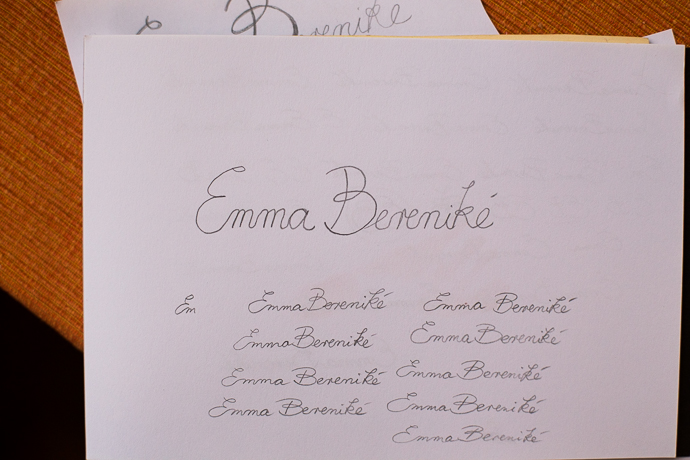 Berenike
Emma Bereniké
Em Emma Bereniké Emma Bereniké
Emma Bereniké Emma Bereniké
Emma Bereniké Emma Bereniké
Emma Bereniké Emma Bereniké
Emma Bereniké